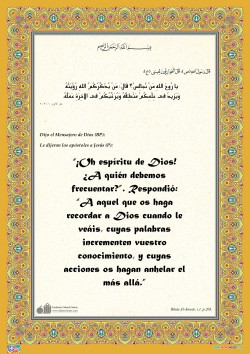 بِسْمِ اللهِ الرَّحْمٰنِ الرَّحِيمِ
يا رُوحَ اللهِ مَنْ نُجالِسُ؟ قالَ: مَنْ يُذَكِّرُكُمُ اللهَ رُؤْيَتُهُ
وَيَزِيدُ فِي عِلْمِكُمْ مَنْطِقُهُ وَيُرَغِّبُكُمْ فِي الْآخِرَةِ عَمَلُهُ
Dijo el Mensajero de Dios (BP):
Le dijeron los apóstoles a Jesús (P):
"¡Oh espíritu de Dios!
¿A quién debemos
frecuentar?". Respondió:
"A aquel que os haga
recordar a Dios cuando le
veáis, cuyas palabras
incrementen vuestro
conocimiento, y cuyas
acciones os hagan anhelar el
más allá."